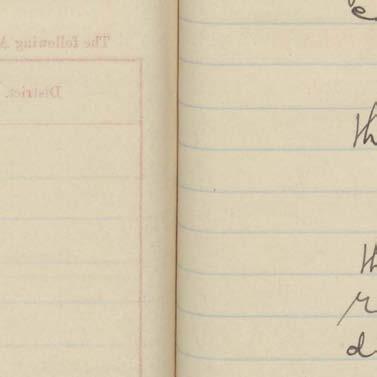 The following A
District.
th
th
r
d